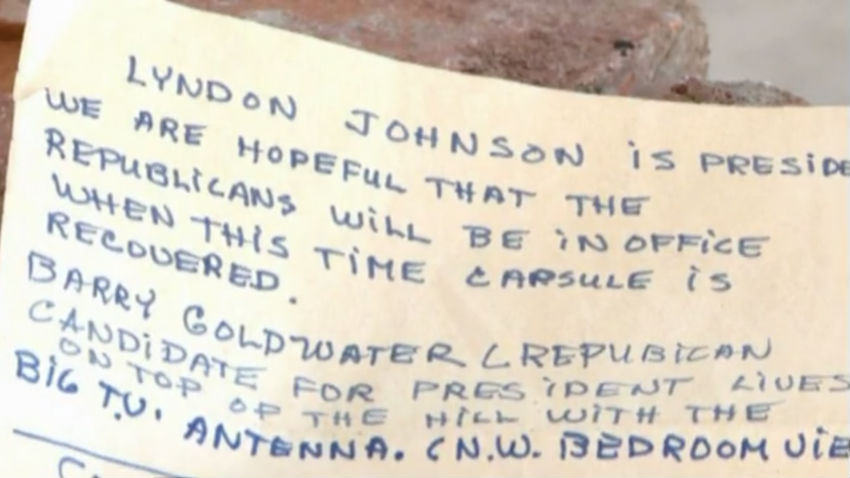 LYNDON JOHNSON iS PRESiDE
WE ARE HOPEFUL THAT THE
REPUBLiCANS WiLL BE iN OFFiCE
WHEN THIS TiME CAPSULE iS
RECOVERED.
BARRY GOLDWATER (REPUBiCAN
CANDiDATE FOR PRESiDENT LiVES
ON TOP OF THE HiLL WiTH THE
BiG T.V. ANTENNA. (N.W. BEDROOM ViE